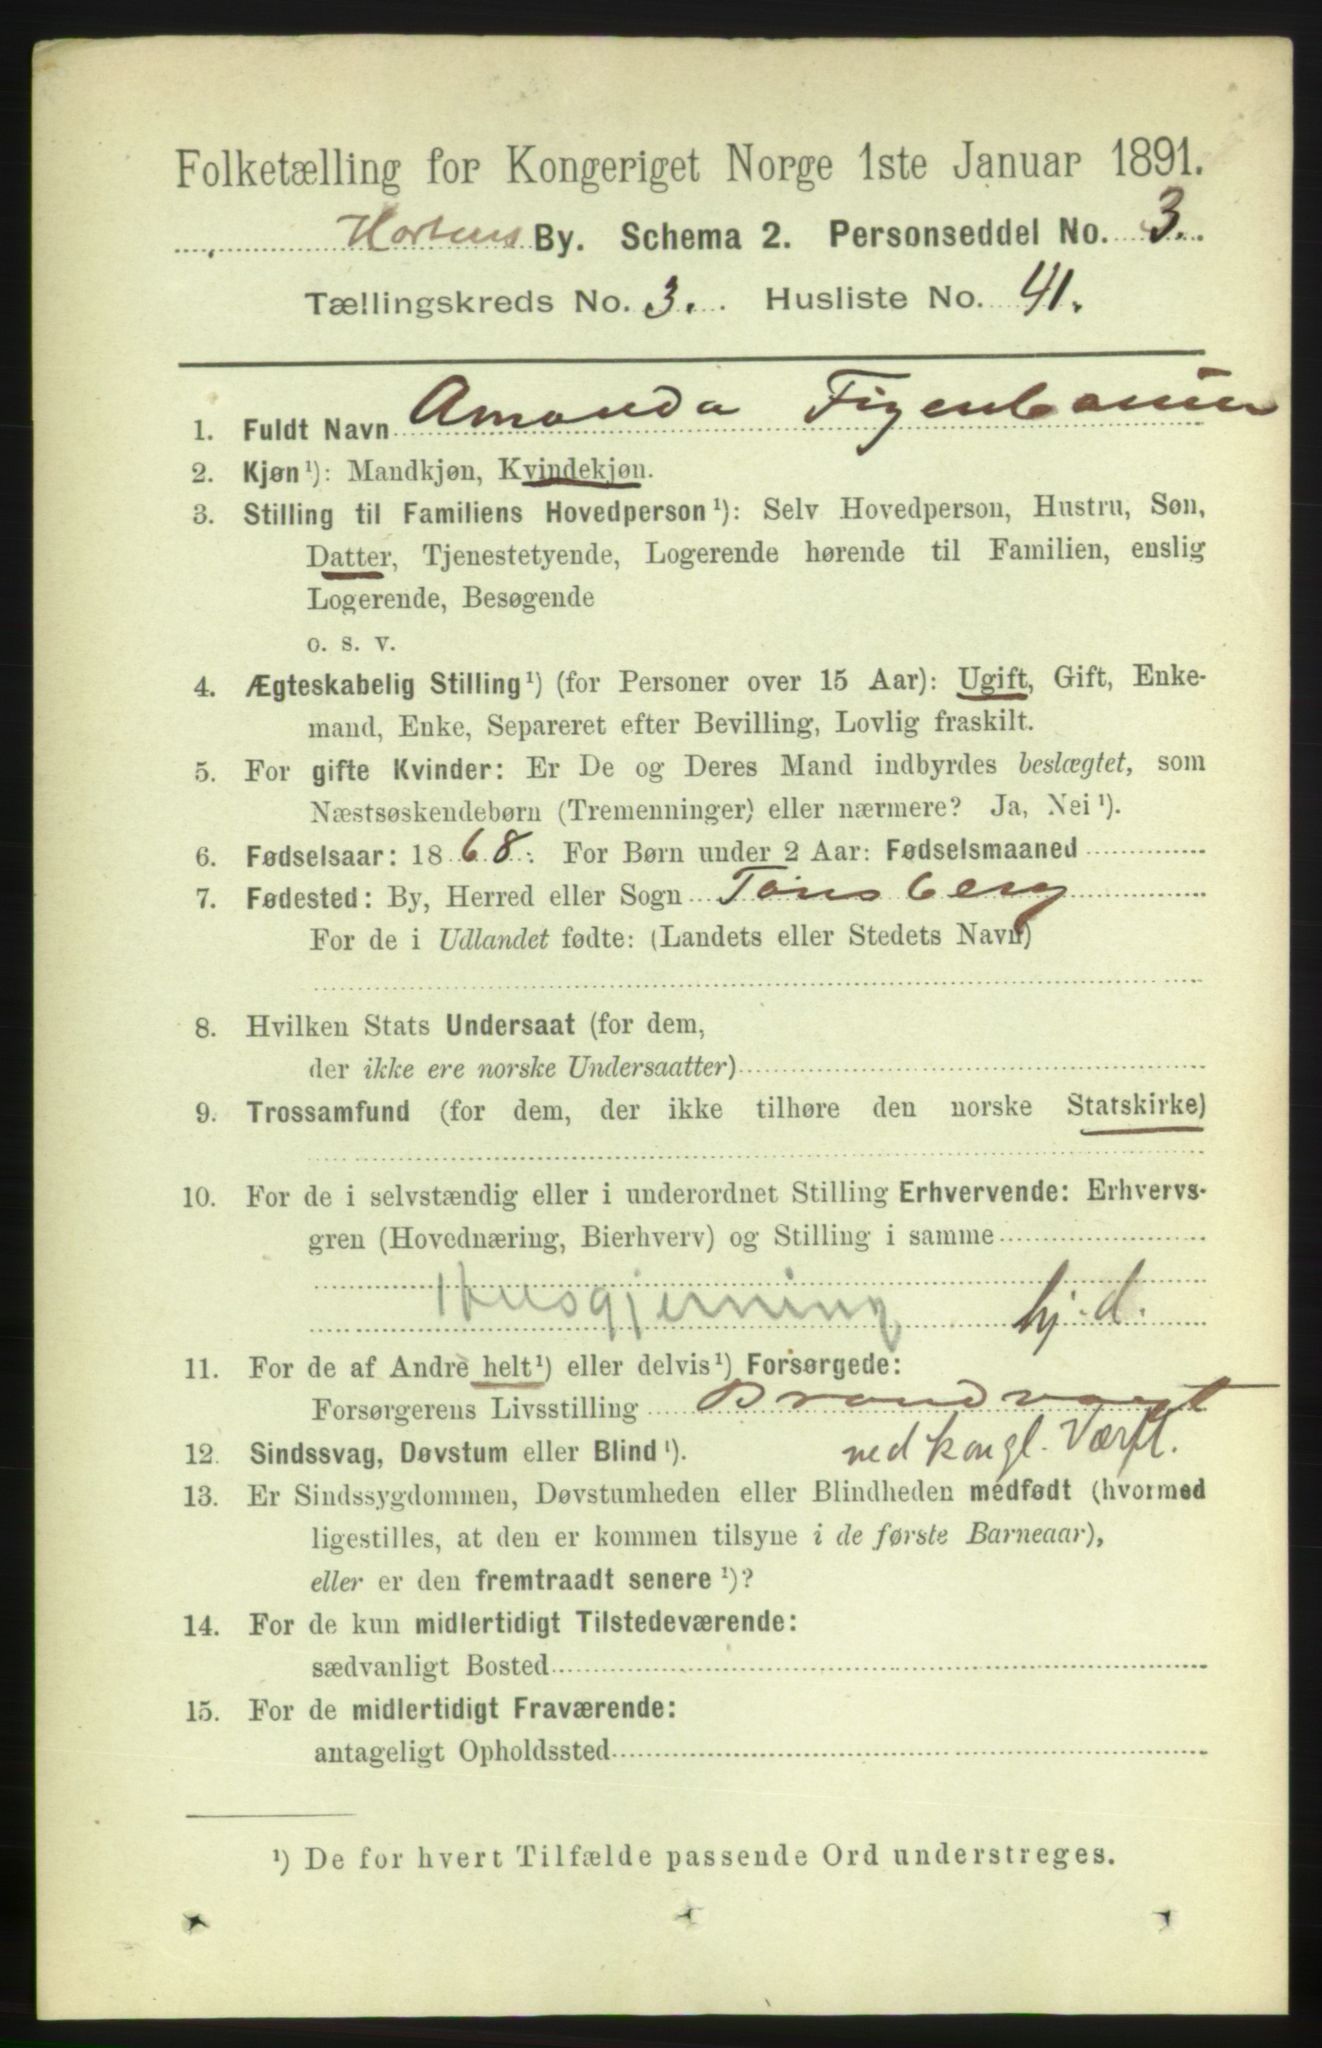 Folketælling for Kongeriget Norge 1ste Januar 1891.
Hortens By. Schema 2. Personseddel No. 3.
Tællingskreds No. 3. Husliste No. 41.
1. Fuldt Navn Amanda Figenbaum
2. Kjøn¹): Mandkjøn, Kvindekjøn.
3. Stilling til Familiens Hovedperson¹): Selv Hovedperson, Hustru, Søn,
Datter, Tjenestetyende, Logerende hørende til Familien, enslig
Logerende, Besøgende
o. s. v.
4. Ægteskabelig Stilling¹) (for Personer over 15 Aar): Ugift, Gift, Enke-
mand, Enke, Separeret efter Bevilling, Lovlig fraskilt.
5. For gifte Kvinder: Er De og Deres Mand indbyrdes beslægtet, som
Næstsøskendebørn (Tremenninger) eller nærmere? Ja, Nei¹).
6. Fødselsaar: 1868. For Børn under 2 Aar: Fødselsmaaned
7. Fødested: By, Herred eller Sogn Tønsberg
For de i Udlandet fødte: (Landets eller Stedets Navn)
8. Hvilken Stats Undersaat (for dem,
der ikke ere norske Undersaatter)
9. Trossamfund (for dem, der ikke tilhøre den norske Statskirke)
10. For de i selvstændig eller i underordnet Stilling Erhvervende: Erhvervs-
gren (Hovednæring, Bierhverv) og Stilling i samme
Husgjerning hj. d.
11. For de af Andre helt¹) eller delvis¹) Forsørgede:
Forsørgerens Livsstilling Brandvagt
12. Sindssvag, Døvstum eller Blind¹). ved kongl. Værft.
13. Er Sindssygdommen, Døvstumheden eller Blindheden medfødt (hvormed
ligestilles, at den er kommen tilsyne i de første Barneaar),
eller er den fremtraadt senere¹)?
14. For de kun midlertidigt Tilstedeværende:
sædvanligt Bosted
15. For de midlertidigt Fraværende:
antageligt Opholdssted
¹) De for hvert Tilfælde passende Ord understreges.